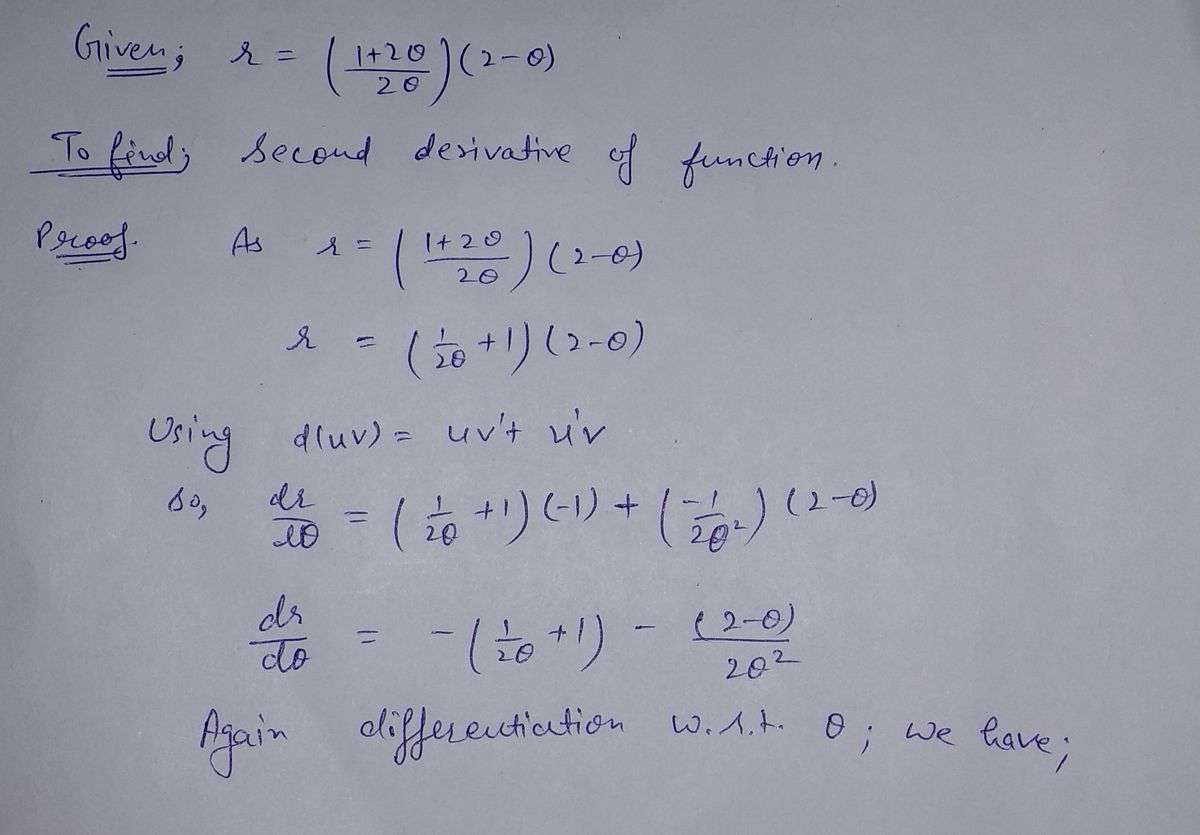 Given; r = ( 1+2θ / 2θ ) (2-θ)
To find; Second derivative of function.
Proof. As r = ( 1+2θ / 2θ ) (2-θ)
r = ( 1/2θ +1) (2-θ)
Using d(uv) = uv'+ u'v
so, dr/dθ = ( 1/2θ +1) (-1) + ( -1/2θ² ) (2-θ)
dr/dθ = -( 1/2θ +1) - (2-θ)/2θ²
Again differentiation w.r.t. θ; we have;